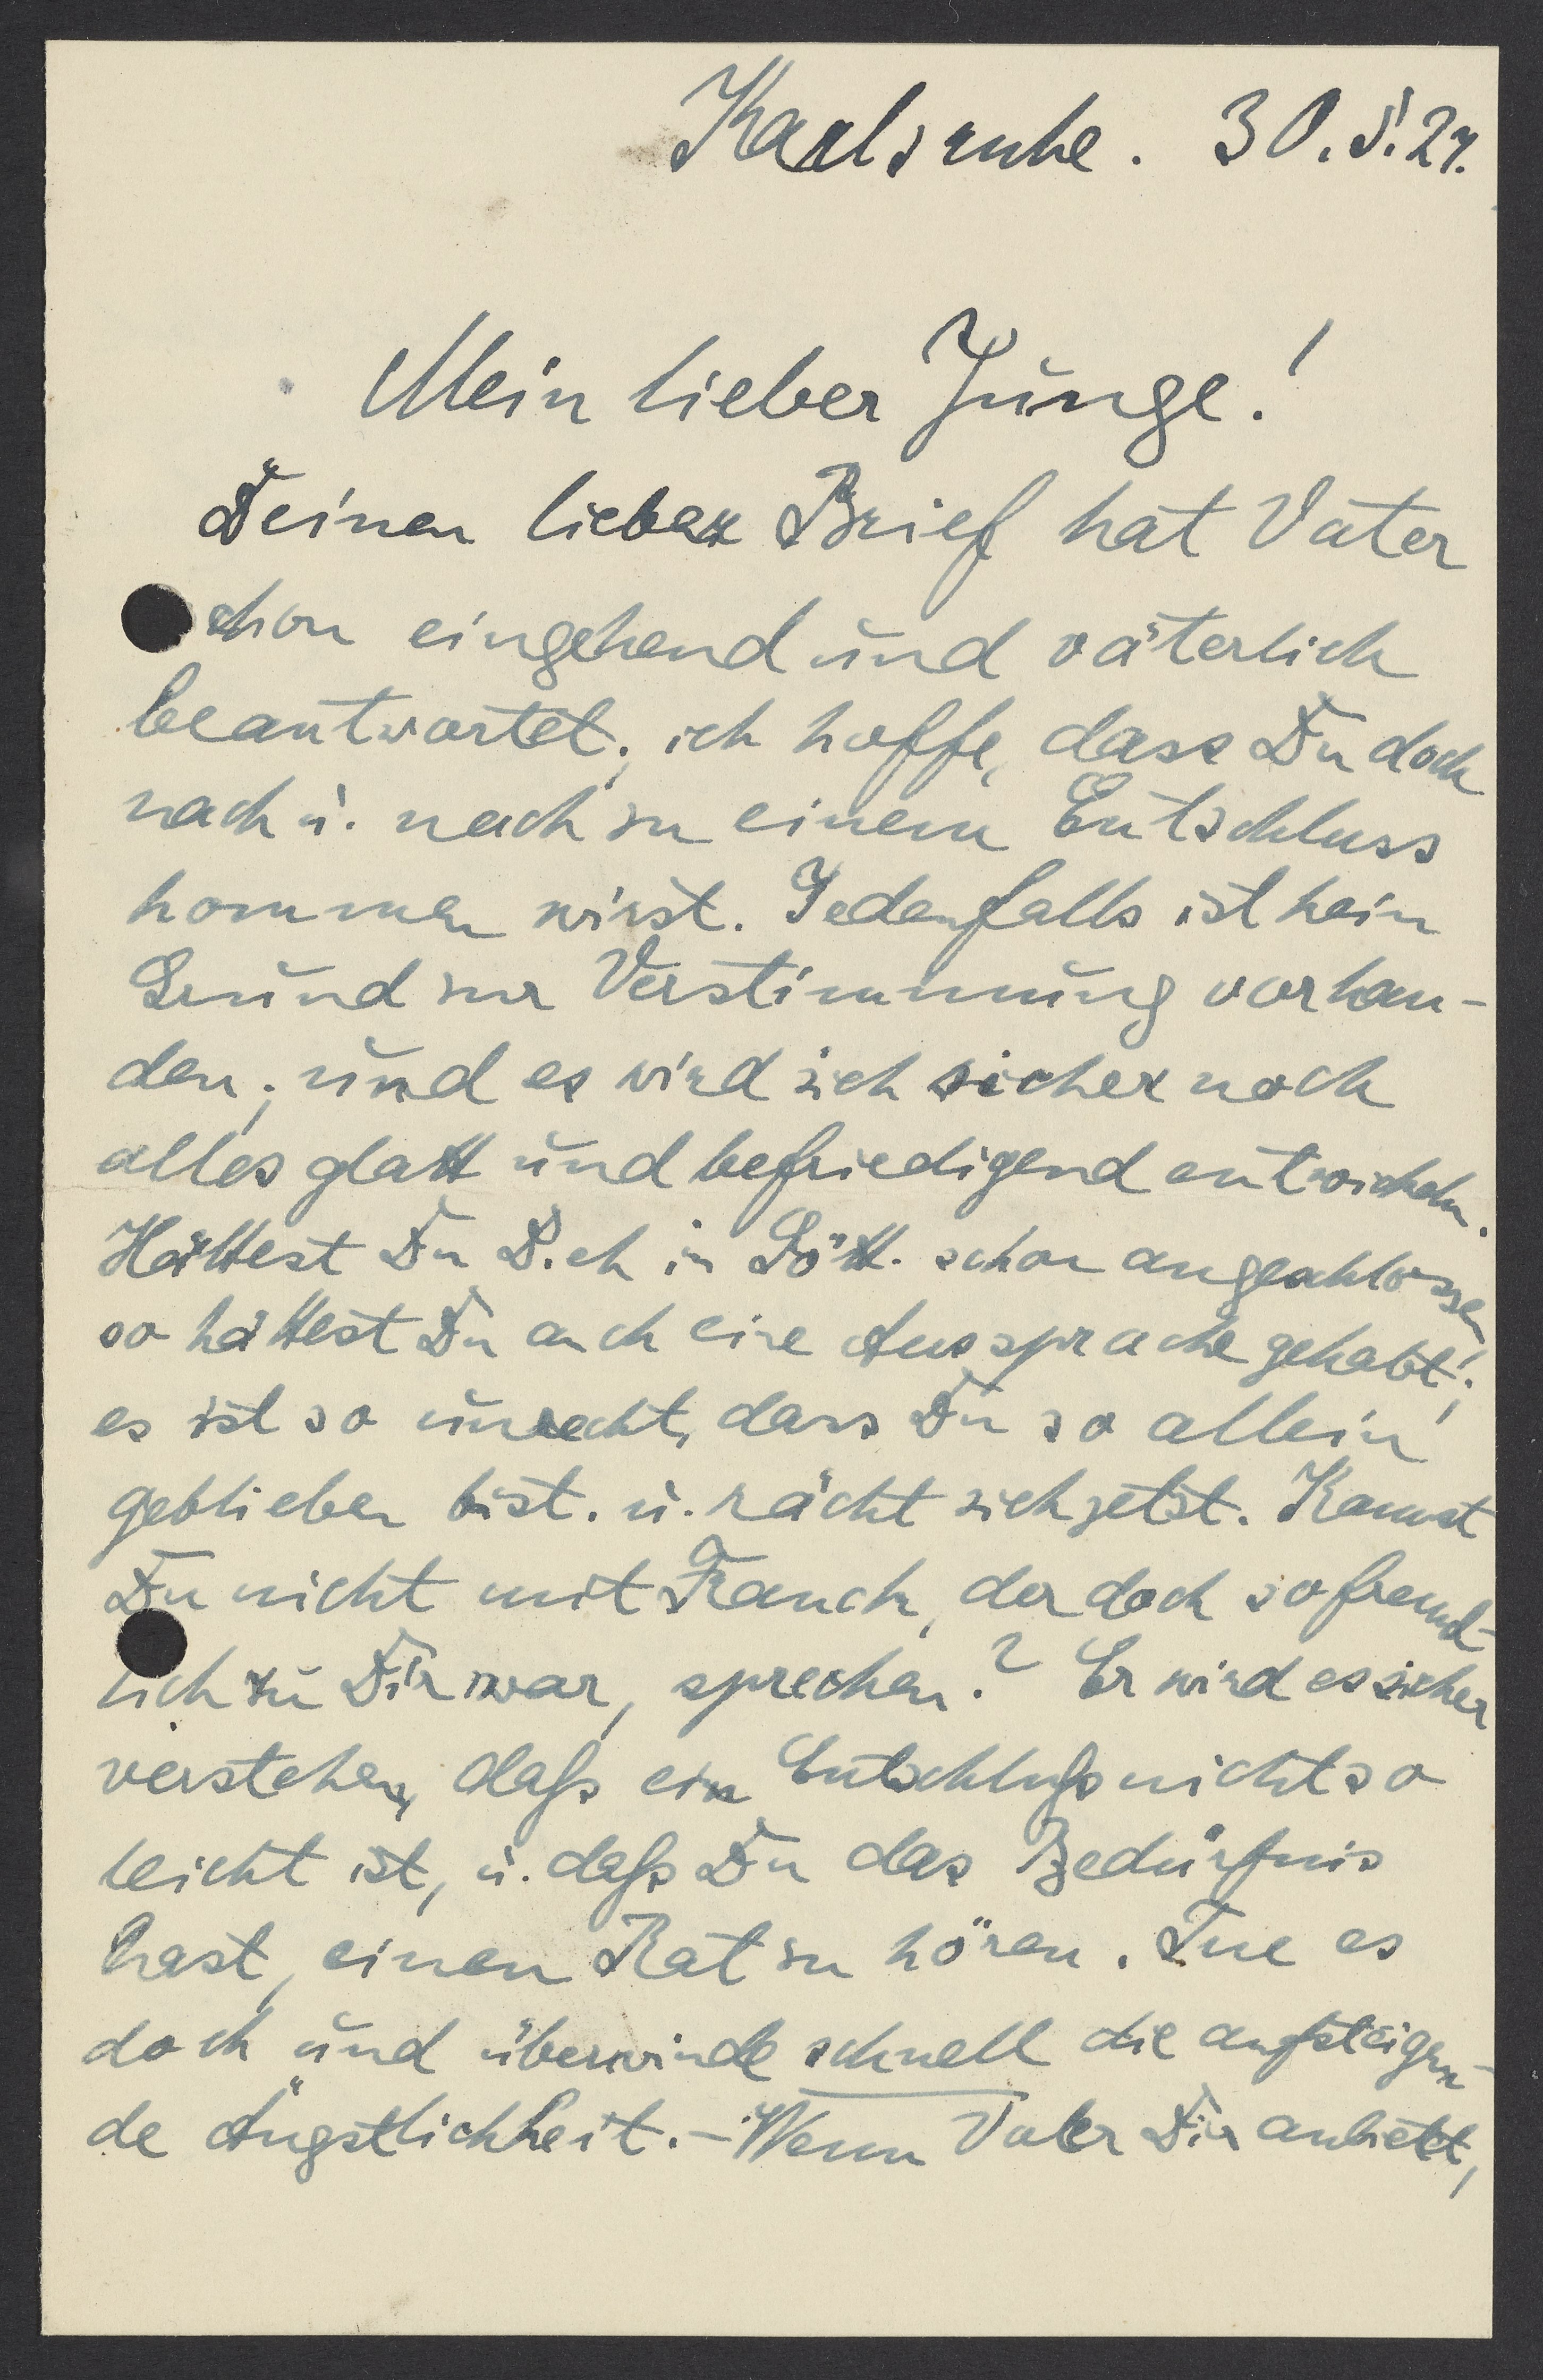 Karlsruhe. 30.5.24.
Mein lieber Junge!
Deinen lieben Brief hat Vater
schon eingehend und väterlich
beantwortet; ich hoffe, dass Du doch
nach u. nach zu einem Entschluss
kommen wirst. Jedenfalls ist kein
Grund zur Verstimmung vorhan-
den; und es wird sich sicher noch
alles glatt und befriedigend entwickeln.
Hättest Du Dich in Gött. schon angeschlossen
so hättest Du auch eine Aussprache gehabt!;
es ist so unrecht, dass Du so allein
geblieben bist. u. rächt sich jetzt. Kannst
Du nicht mit Franck, der doch so freund-
lich zu Dir war, sprechen? Er wird es sicher
verstehen, daß ein Entschluß nicht so
leicht ist, u. daß Du das Bedürfnis
hast, einen Rat zu hören. Tue es
doch und überwinde schnell die aufsteigen-
de Ängstlichkeit. – Wenn Vater Dir anbietet,